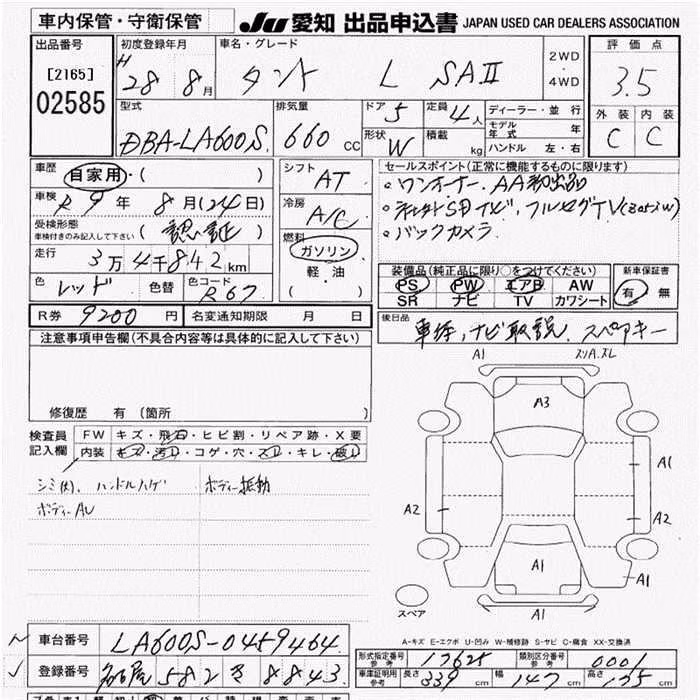 車内保管・守衛保管 JU 愛知 出品申込書 JAPAN USED CAR DEALERS ASSOCIATION
出品番号 初度登録年月 車名・グレード 評価点
[2165] H 28 8月 タント L SAⅡ 2WD ・ 4WD 3.5
02585 型式 排気量 ドア 5 定員 4人 ディーラー・並行 外装 内装
DBA-LA600S 660 CC 形状 W 積載 kg モデル年式 年 C C
ハンドル 左・右
車歴 自家用・( ) シフト AT セールスポイント(正常に機能するものに限ります)
車検 R9年 8月(24日) 冷房 A/C ・ワンオーナー. AA初出品
受検形態 車検付きのみ記入して下さい (認証) 燃料 ガソリン ・社外SDナビ, フルセグTV
走行 3万4千842km 軽・油 ・バックカメラ
( )
色 レッド 色替 色コード R67 装備品(純正品に限り○をつけてください) 新車保証書
PS PW エアB AW 有・無
SR ナビ TV カワシート
R券 9200円 名変通知期限 月 日 後日品 車検, ナビ取説, スペアキー
注意事項申告欄(不具合内容等は具体的に記入して下さい)
修復歴 有 (箇所 )
検査員 FW キズ・飛石・ヒビ割・リペア跡・X要
記入欄 内装 キズ・汚れ・コゲ・穴・スレ・キレ・破れ
シミ(大). ハンドルハゲ ボディー振動
ボディーAU
A1 スリA.スレ
A3
A1
A2 A2
A1
A1
スペア
A-キズ E-エクボ U-凹み W-補修跡 S-サビ C-腐食 XX-交換済
車台番号 LA600S-0459464
登録番号 名古屋 582 き 8843
形式指定番号 参考 17625 類別区分番号 参考 0001
車庫証明用 参考 長さ 339cm 幅 147cm 高さ 175cm